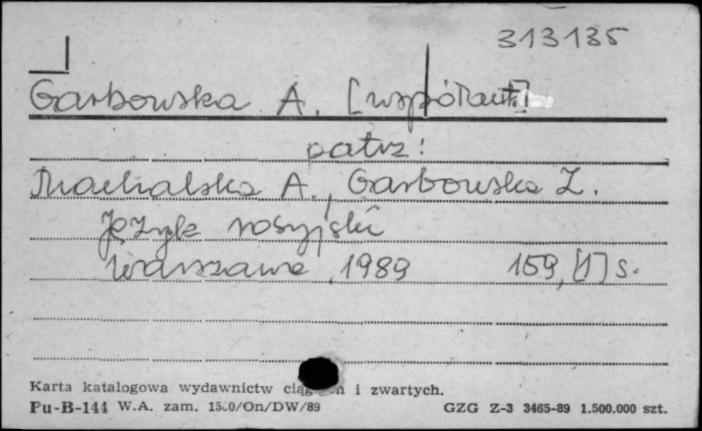 313135
Garbowska A. [współaut.]
patrz:
Machalska A., Garbowska Z.
Język rosyjski
Warszawa, 1989 159, [1] s.
Karta katalogowa wydawnictw i zwartych.
Pu-B-144 W.A. zam. /On/DW/89 GZG Z-3 3465-89 1.500.000 szt.